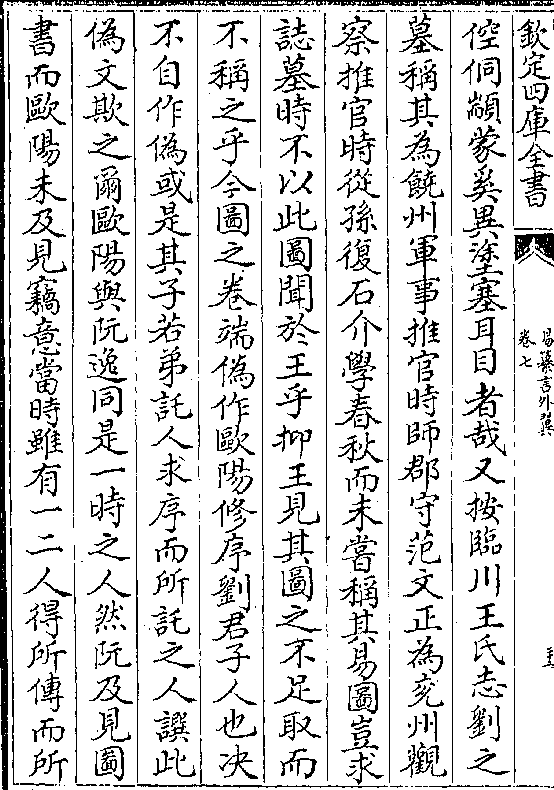 欽定四庫全書
易纂言外翼
卷七
倥侗顓蒙奚異塗塞耳目者哉又按臨川王氏志劉之
墓稱其為饒州軍事推官時師郡守范文正為兖州觀
察推官時從孫復石介學春秋而未嘗稱其易圖豈求
誌墓時不以此圖聞於王乎抑王見其圖之不足取而
不稱之乎今圖之卷端偽作歐陽修序劉君子人也决
不自作偽或是其子若弟託人求序而所託之人譔此
偽文欺之爾歐陽與阮逸同是一時之人然阮及見圖
書而歐陽未及見竊意當時雖有一二人得所傳而所